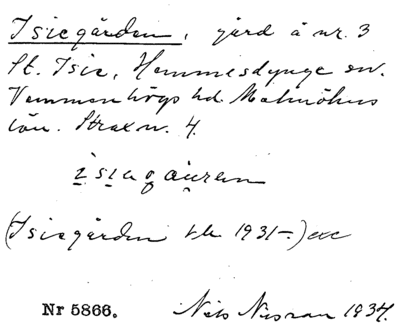 Isiegården, gård å nr. 3
St. Isie, Hemmesdynge sn.
Vemmenhögs hd. Malmöhus
län. Strax n. 4.
ìsıagǫȧu̯ren
(Isiegården t.k. 1931–) exc
Nr 5866. Nils Nilsson 1934.